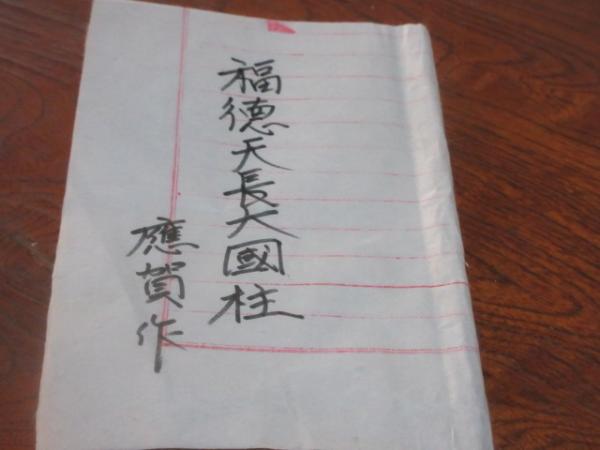 福德天長大國柱
應賀作